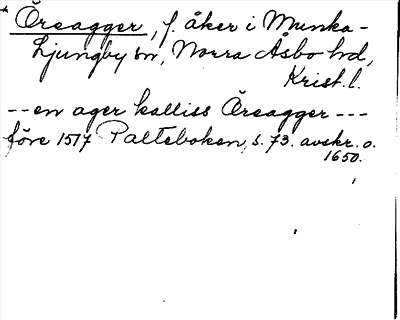 * Öreagger, f. åker i Munka-
Ljungby sn, Norra Åsbo hd,
Krist. l.
-- en ager kalliss Öreagger ---
före 1517 Palteboken, s. 73. avskr. o.
1650.